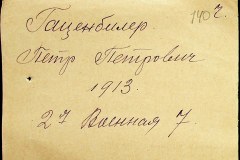 140 г.
Гаценбилер
Петр Петрович
1913.
2я Военная 7.